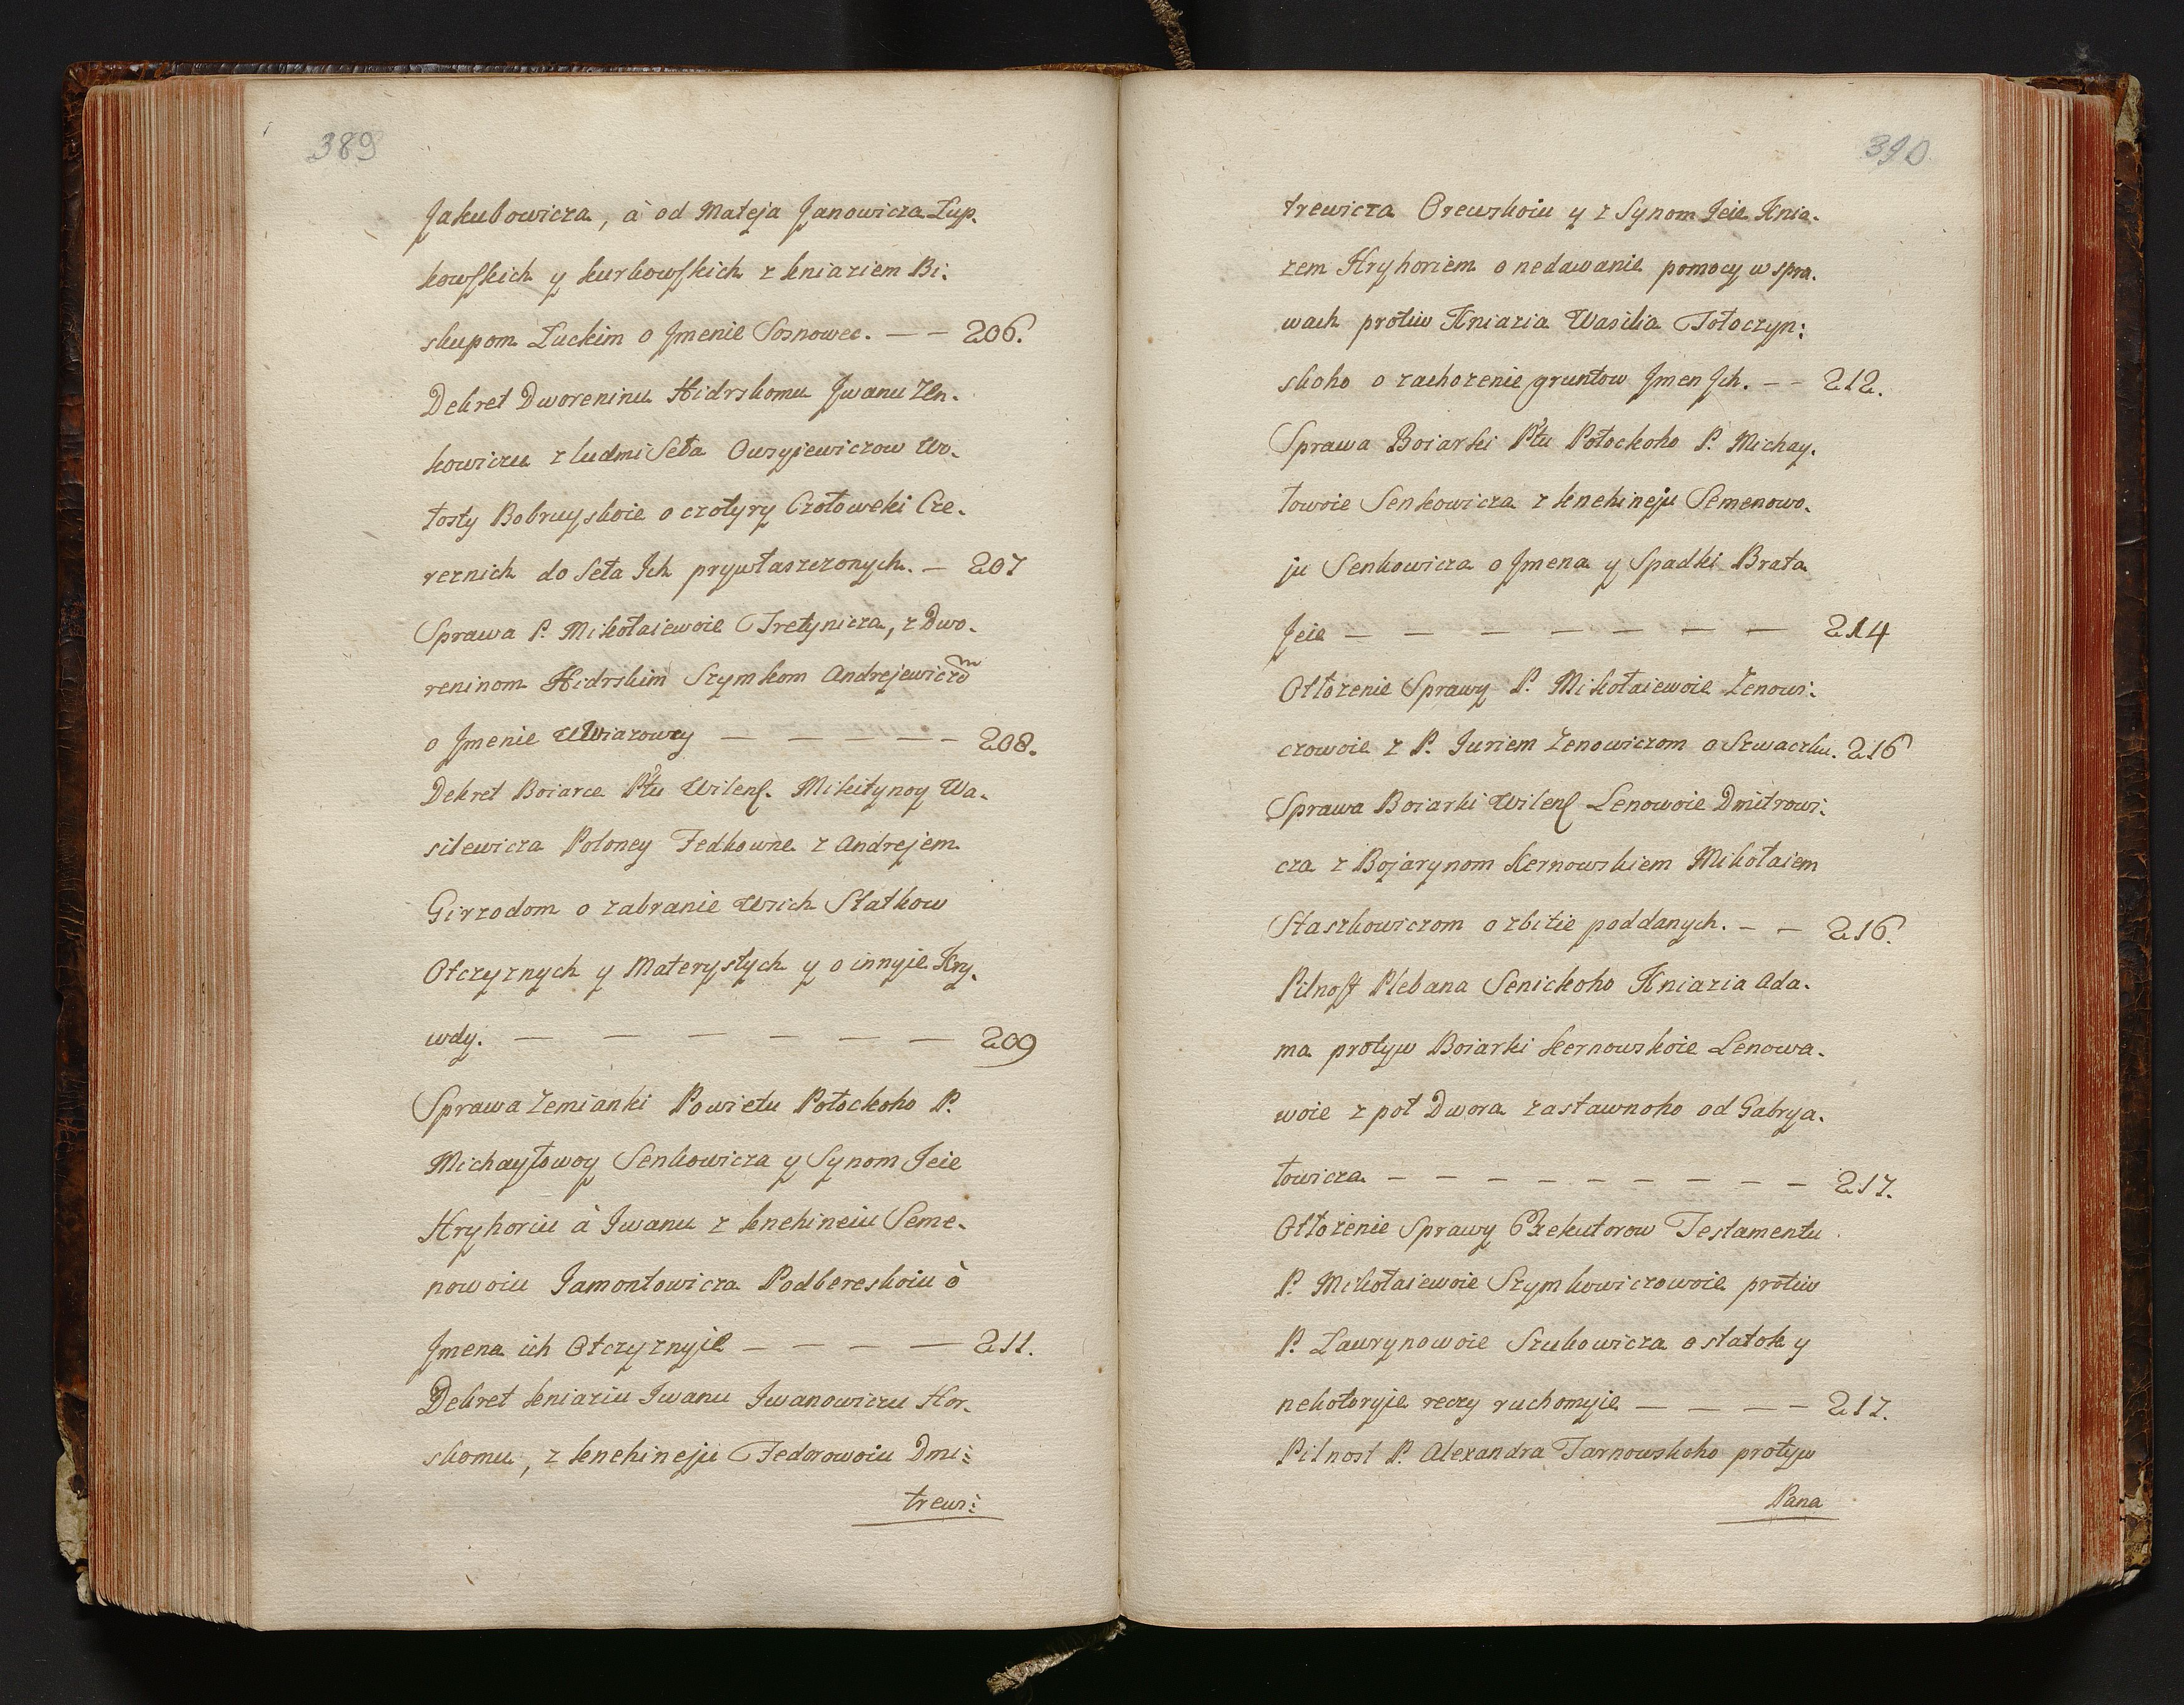 389
Jakubowicza, à od Mateja Janowicza Łup.
kowskich y kurkowskich z kniaziem Bi:
skupom Łuckim o Jmenie Sosnowec. — — 206.
Dekret Dworeninu Hidrskomu Jwanu Zen.
kowiczu z ludmi Seła Owsyjewiczow Wo.
łosty Bobruyskoie o czotyry Czołoweki Cze.
reznich do Seła Jch prywłaszczonych. — 207
Sprawa P. Mikołaiewoie Tretynicza, z Dwo.
reninom Hidrskim Szymkom Andrejewiczom
o Jmenie Uwiazowcy — — — — — 208.
Dekret Boiarce Ptu Wilens. Mikitynoy Wa.
silewicza Poloney Fedkowne z Andrejem
Girzodom o zabranie Wsich Statkow
Otczyznych y Materystych y o innyie Kry.
wdy. — — — — — — 209
Sprawa Zemianki Powietu Połockoho P.
Michayłowoy Senkowicza y Synom Jeie
Hryhoriu à Jwanu z knehineiu Seme.
nowoiu Jamontowicza Podbereskoiu ò
Jmena ich Otczyznyie — — — — 211.
Dekret kniaziu Jwanu Jwanowiczu Hor.
skomu, z knehineju Fedorowoiu Dmi:
trewi:
390
trewicza Orewskoiu y z Synom Jeie Knia.
zem Hryhoriem o nedawanie pomocy w spra.
wach protiw Kniazia Wasilia Tołoczyn:
skoho o zachozenie gruntow Jmen Jch. — — 212.
Sprawa Boiarki Ptu Połockoho P. Michay.
łowoie Senkowicza z knehineju Semenowo.
ju Senkowicza o Jmena y Spadki Brata
Jeie — — — — — — — 214
Otłozenie Sprawy P. Mikołaiewoie Zenowi:
czowoie z P. Juriem Zenowiczom o Szwaczku. 216
Sprawa Boiarki Wilens Lenowoie Dmitrowi:
cza z Bojarynom Kernowskiem Mikołaiem
Staszkowiczom o zbitie poddanych. — — 216.
Pilnost Plebana Senickoho Kniazia Ada.
ma protyw Boiarki kernowskoie Lenowa.
woie z poł Dwora zastawnoho od Gabrya.
łowicza — — — — — — — — — 217.
Otłozenie Sprawy Exekutorow Testamentu
P. Mikołaiewoie Szymkowiczowoie protiw
P. Ławrynowoie Szukowicza o statok y
nekotoryie reczy ruchomyie — — — — 217.
Pilnost P. Alexandra Tarnowskoho protyw
Pana